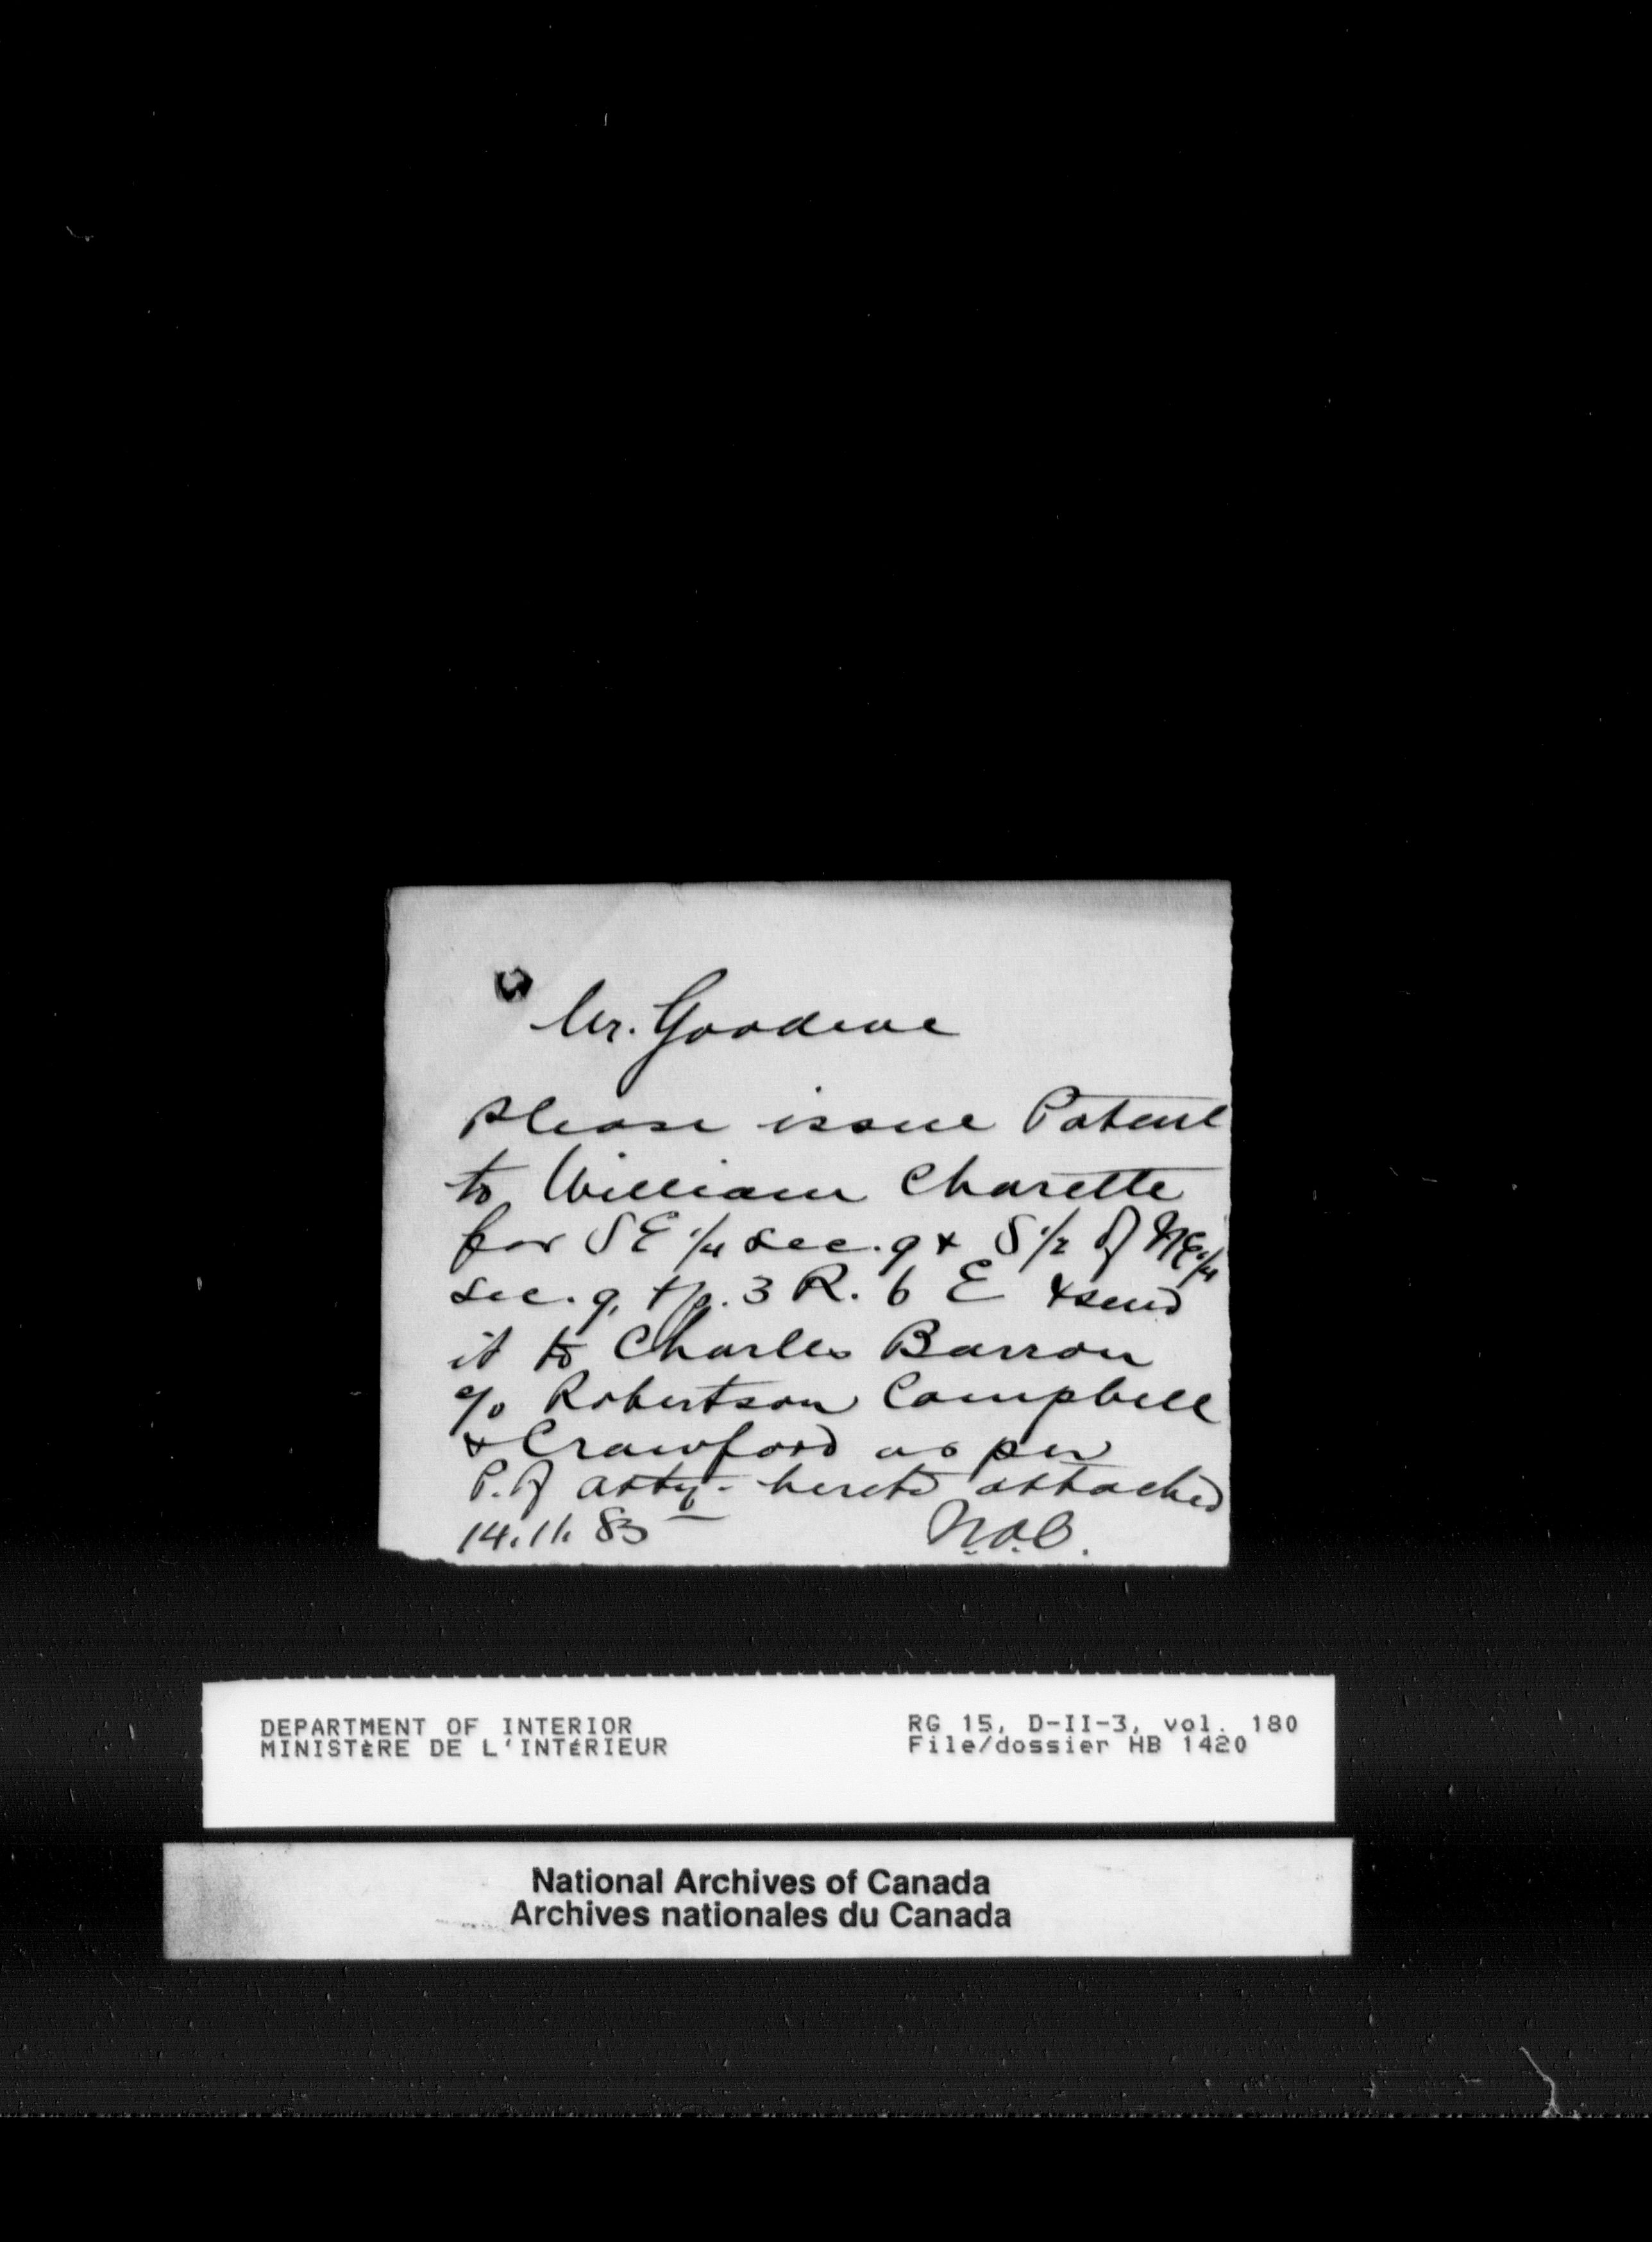 Mr. Goodeve
Please issue Patent
to William Charette
for S E 1/4 sec. 9 & S 1/2 of NE 1/4
Sec. 9, tp. 3 R. 6 E & send
it to Charles Barron
c/o Robertson Campbell
& Crawford as per
P. of atty. hereto attached
14.11.83
DEPARTMENT OF INTERIOR
MINISTÈRE DE L'INTÉRIEUR
RG 15, D-II-3, vol. 180
File/dossier HB 1420
National Archives of Canada
Archives nationales du Canada